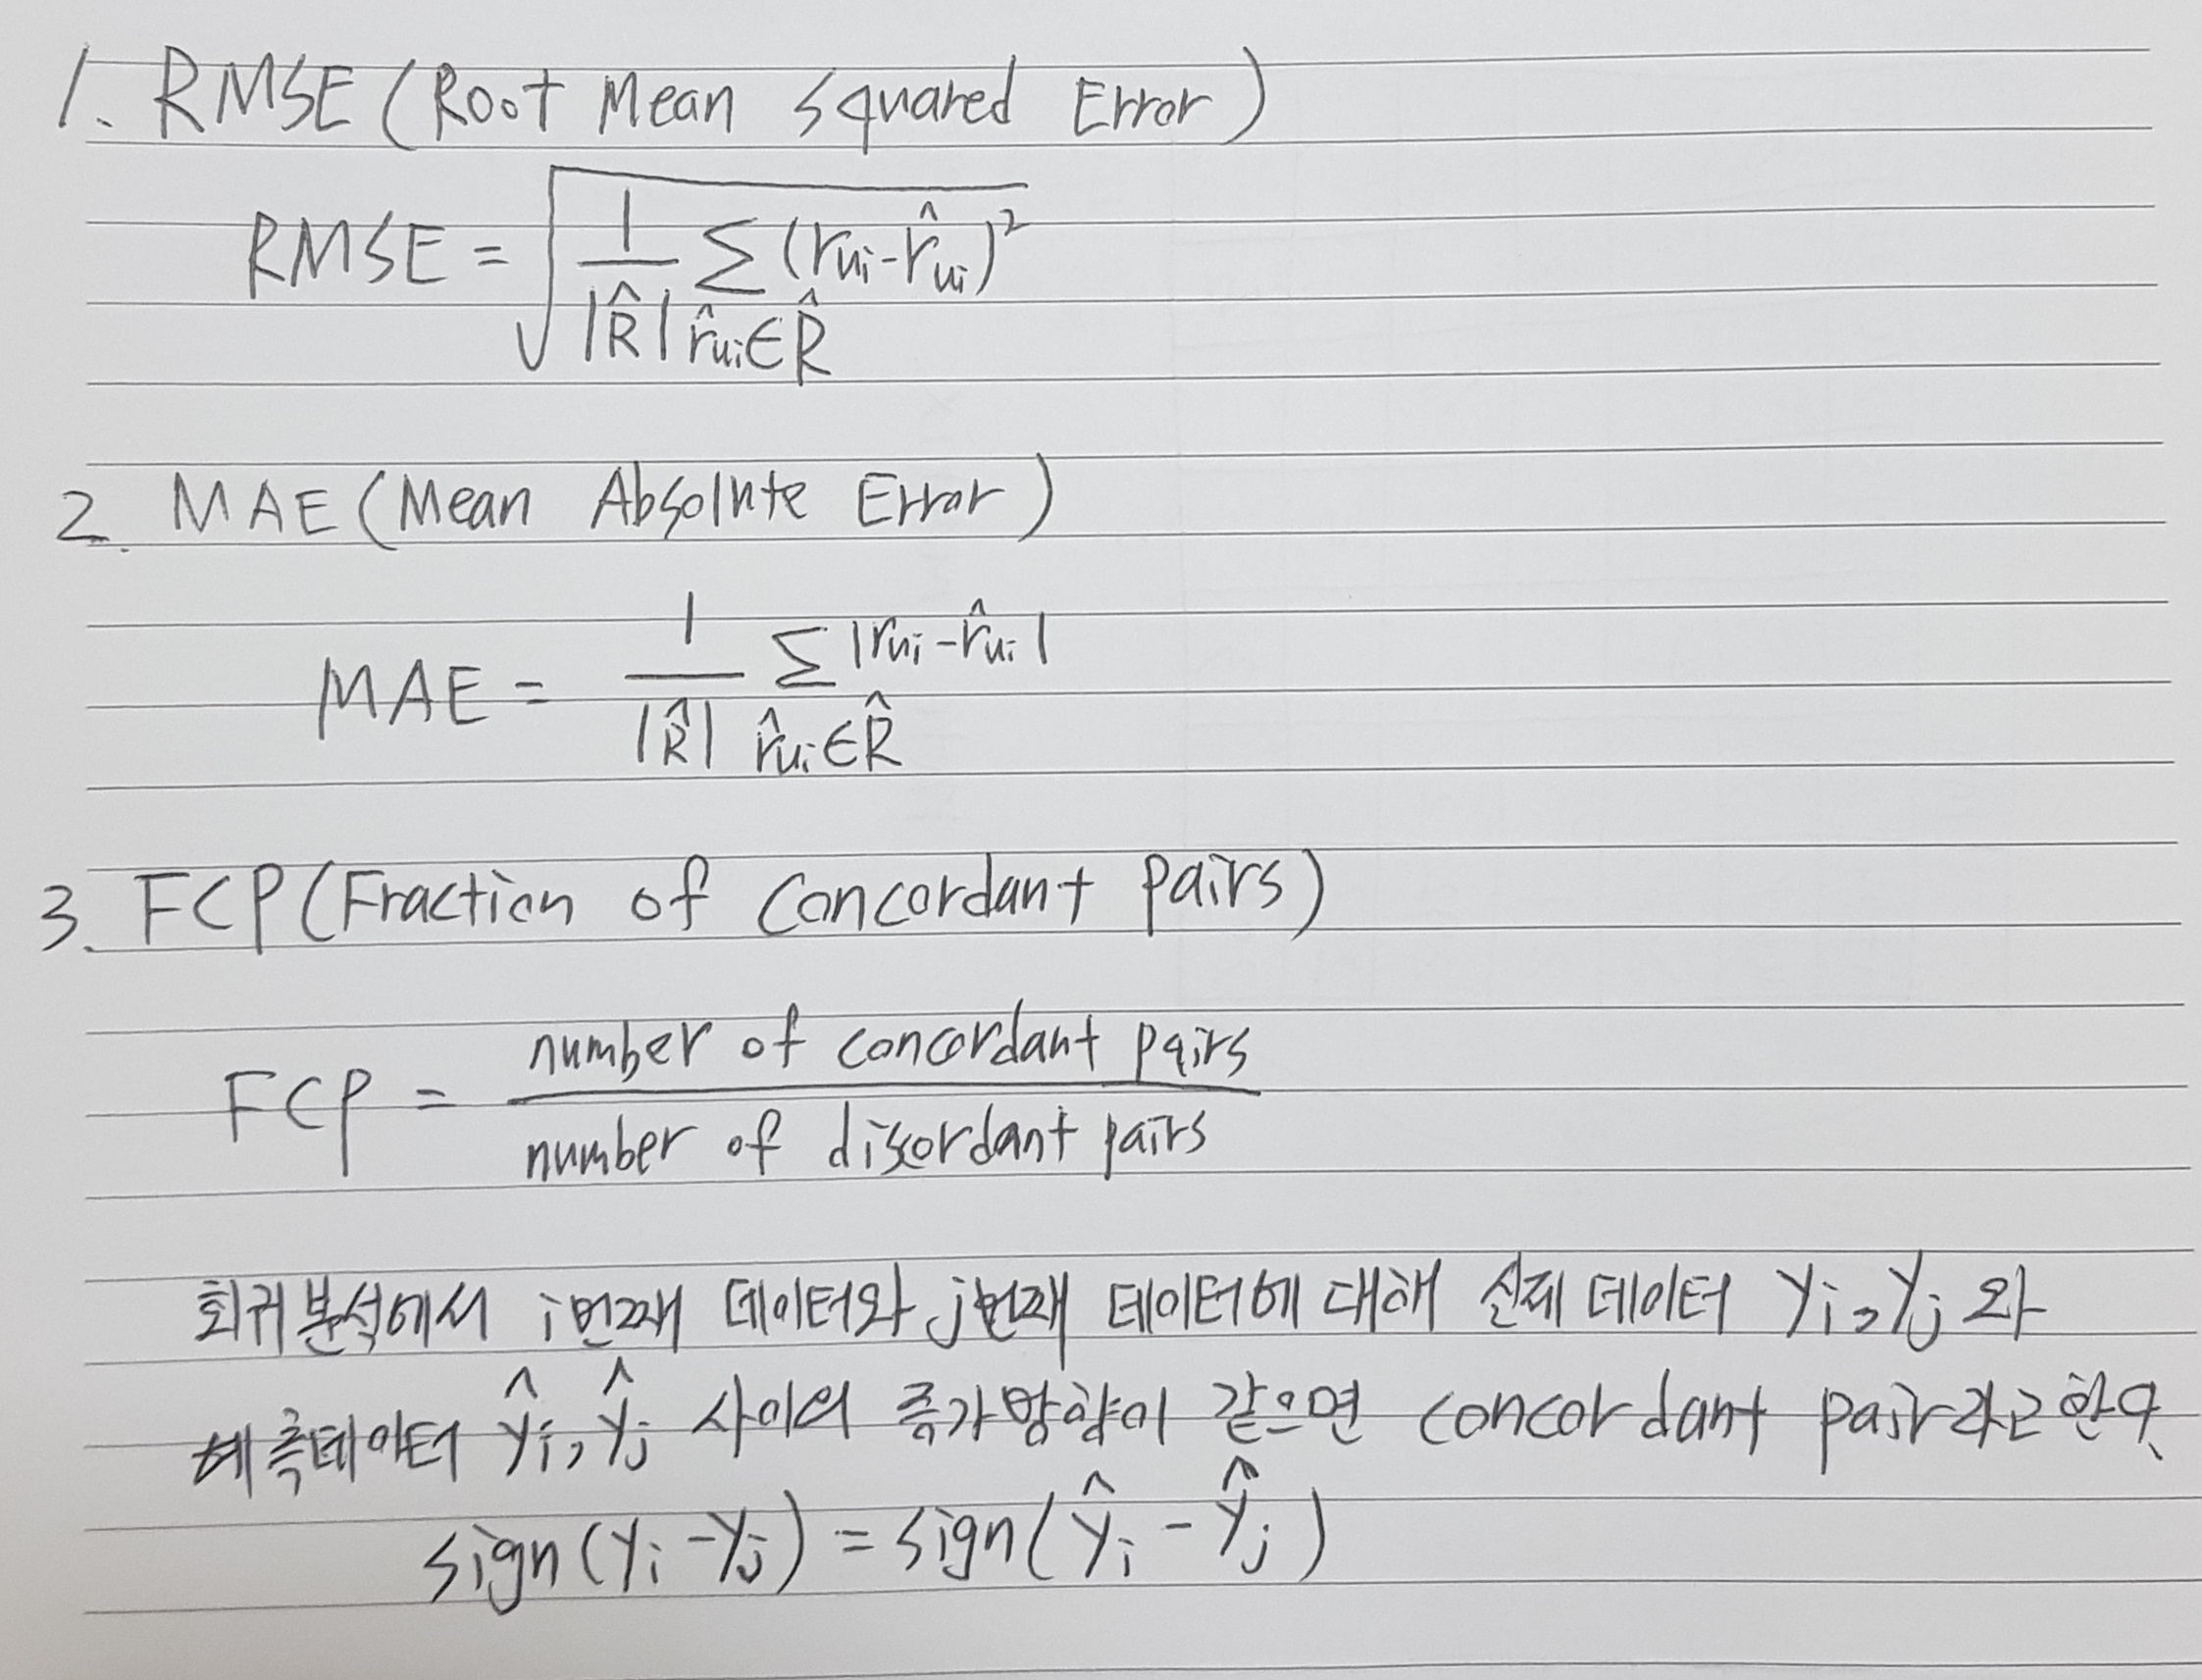 1. RMSE (Root Mean Squared Error)
RMSE = √(1/|R̂| Σ_{r̂ui∈R̂} (rui - r̂ui)²)
2. MAE (Mean Absolute Error)
MAE = 1/|R̂| Σ_{r̂ui∈R̂} |rui - r̂ui|
3. FCP (Fraction of Concordant Pairs)
FCP = number of concordant pairs / number of discordant pairs
회귀분석에서 i번째 데이터와 j번째 데이터에 대해 실제 데이터 yi, yj 와
예측데이터 ŷi, ŷj 사이의 증가방향이 같으면 concordant pair라고 한다.
sign(yi - yj) = sign(ŷi - ŷj)